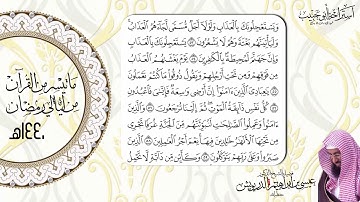 ما تيسر من القرآن
من ليالي رمضان
١٤٤٠هـ
وَيَسْتَعْجِلُونَكَ بِالْعَذَابِ وَلَوْلَا أَجَلٌ مُّسَمًّى لَّجَاءَهُمُ الْعَذَابُ
وَلَيَأْتِيَنَّهُم بَغْتَةً وَهُمْ لَا يَشْعُرُونَ ۝ يَسْتَعْجِلُونَكَ بِالْعَذَابِ
وَإِنَّ جَهَنَّمَ لَمُحِيطَةٌ بِالْكَافِرِينَ ۝ يَوْمَ يَغْشَاهُمُ الْعَذَابُ
مِن فَوْقِهِمْ وَمِن تَحْتِ أَرْجُلِهِمْ وَيَقُولُ ذُوقُوا مَا كُنتُمْ تَعْمَلُونَ
۝ يَاعِبَادِيَ الَّذِينَ آمَنُوا إِنَّ أَرْضِي وَاسِعَةٌ فَإِيَّايَ فَاعْبُدُونِ
۝ كُلُّ نَفْسٍ ذَائِقَةُ الْمَوْتِ ثُمَّ إِلَيْنَا تُرْجَعُونَ ۝ وَالَّذِينَ
آمَنُوا وَعَمِلُوا الصَّالِحَاتِ لَنُبَوِّئَنَّهُم مِّنَ الْجَنَّةِ غُرَفًا تَجْرِي
مِن تَحْتِهَا الْأَنْهَارُ خَالِدِينَ فِيهَا نِعْمَ أَجْرُ الْعَامِلِينَ ۝ الَّذِينَ
صَبَرُوا وَعَلَى رَبِّهِمْ يَتَوَكَّلُونَ ۝ وَكَأَيِّن مِّن دَابَّةٍ لَّا تَحْمِلُ